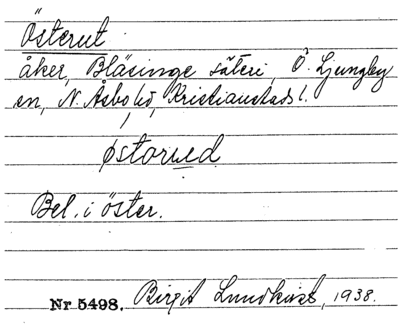 Österut
åker, Bläsinge säteri, Ö. Ljungby
sn, N. Åsbo hd, Kristianstads l.
østorud
Bel. i öster.
Nr 5498. Birgit Lundkvist, 1938.